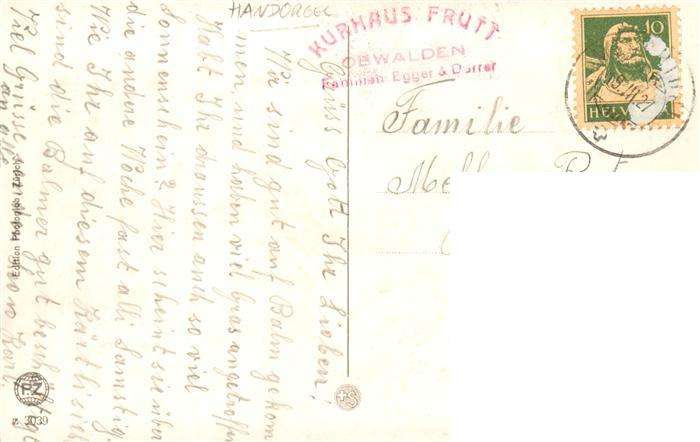 HANDORGEL
KURHAUS FRUTT
OBWALDEN
Familien Egger & Durrer
10
HELVETIA
Familie
Grüss Gott Ihr Lieben!
Wir sind gut auf Balm gekom
men, und haben viel Gras angetroffen
Habt Ihr draussen auch so viel
Sonnenschein? Hier scheint sie über
die andere Woche fast alli Samstig.
Wie Ihr auf diesem Kärtli sieht
sind die Balmer gut beschäftigt
Viel Grüsse sendet von Karl
Edition Photoglob Zürich
P.Z
3039